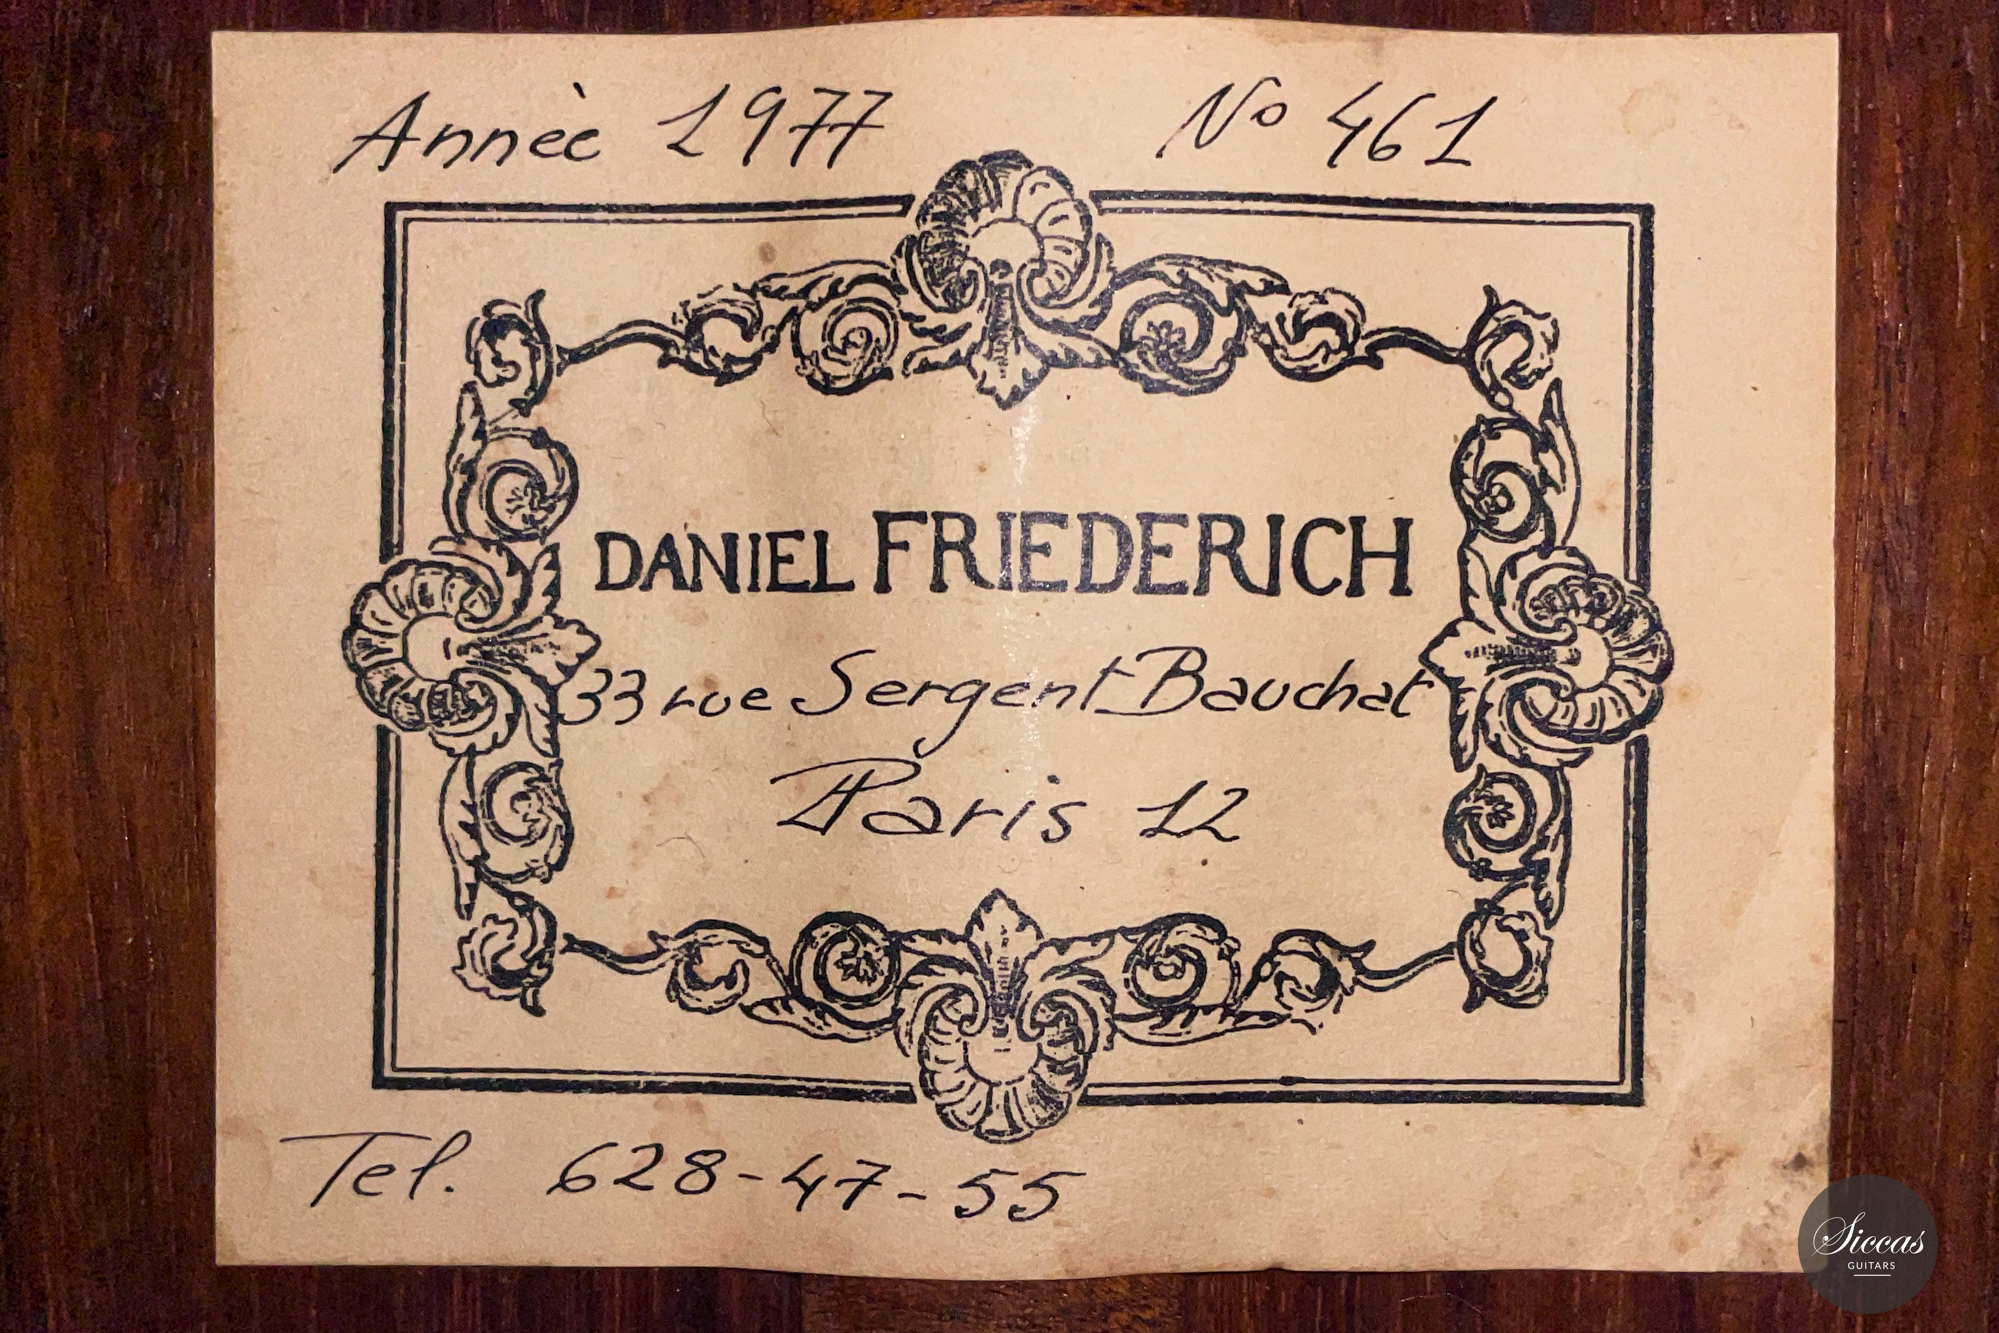 Annèe 1977 No 461
DANIEL FRIEDERICH
33 rue Sergent Bauchat
Paris 12
Tel. 628-47-55
Siccas
GUITARS